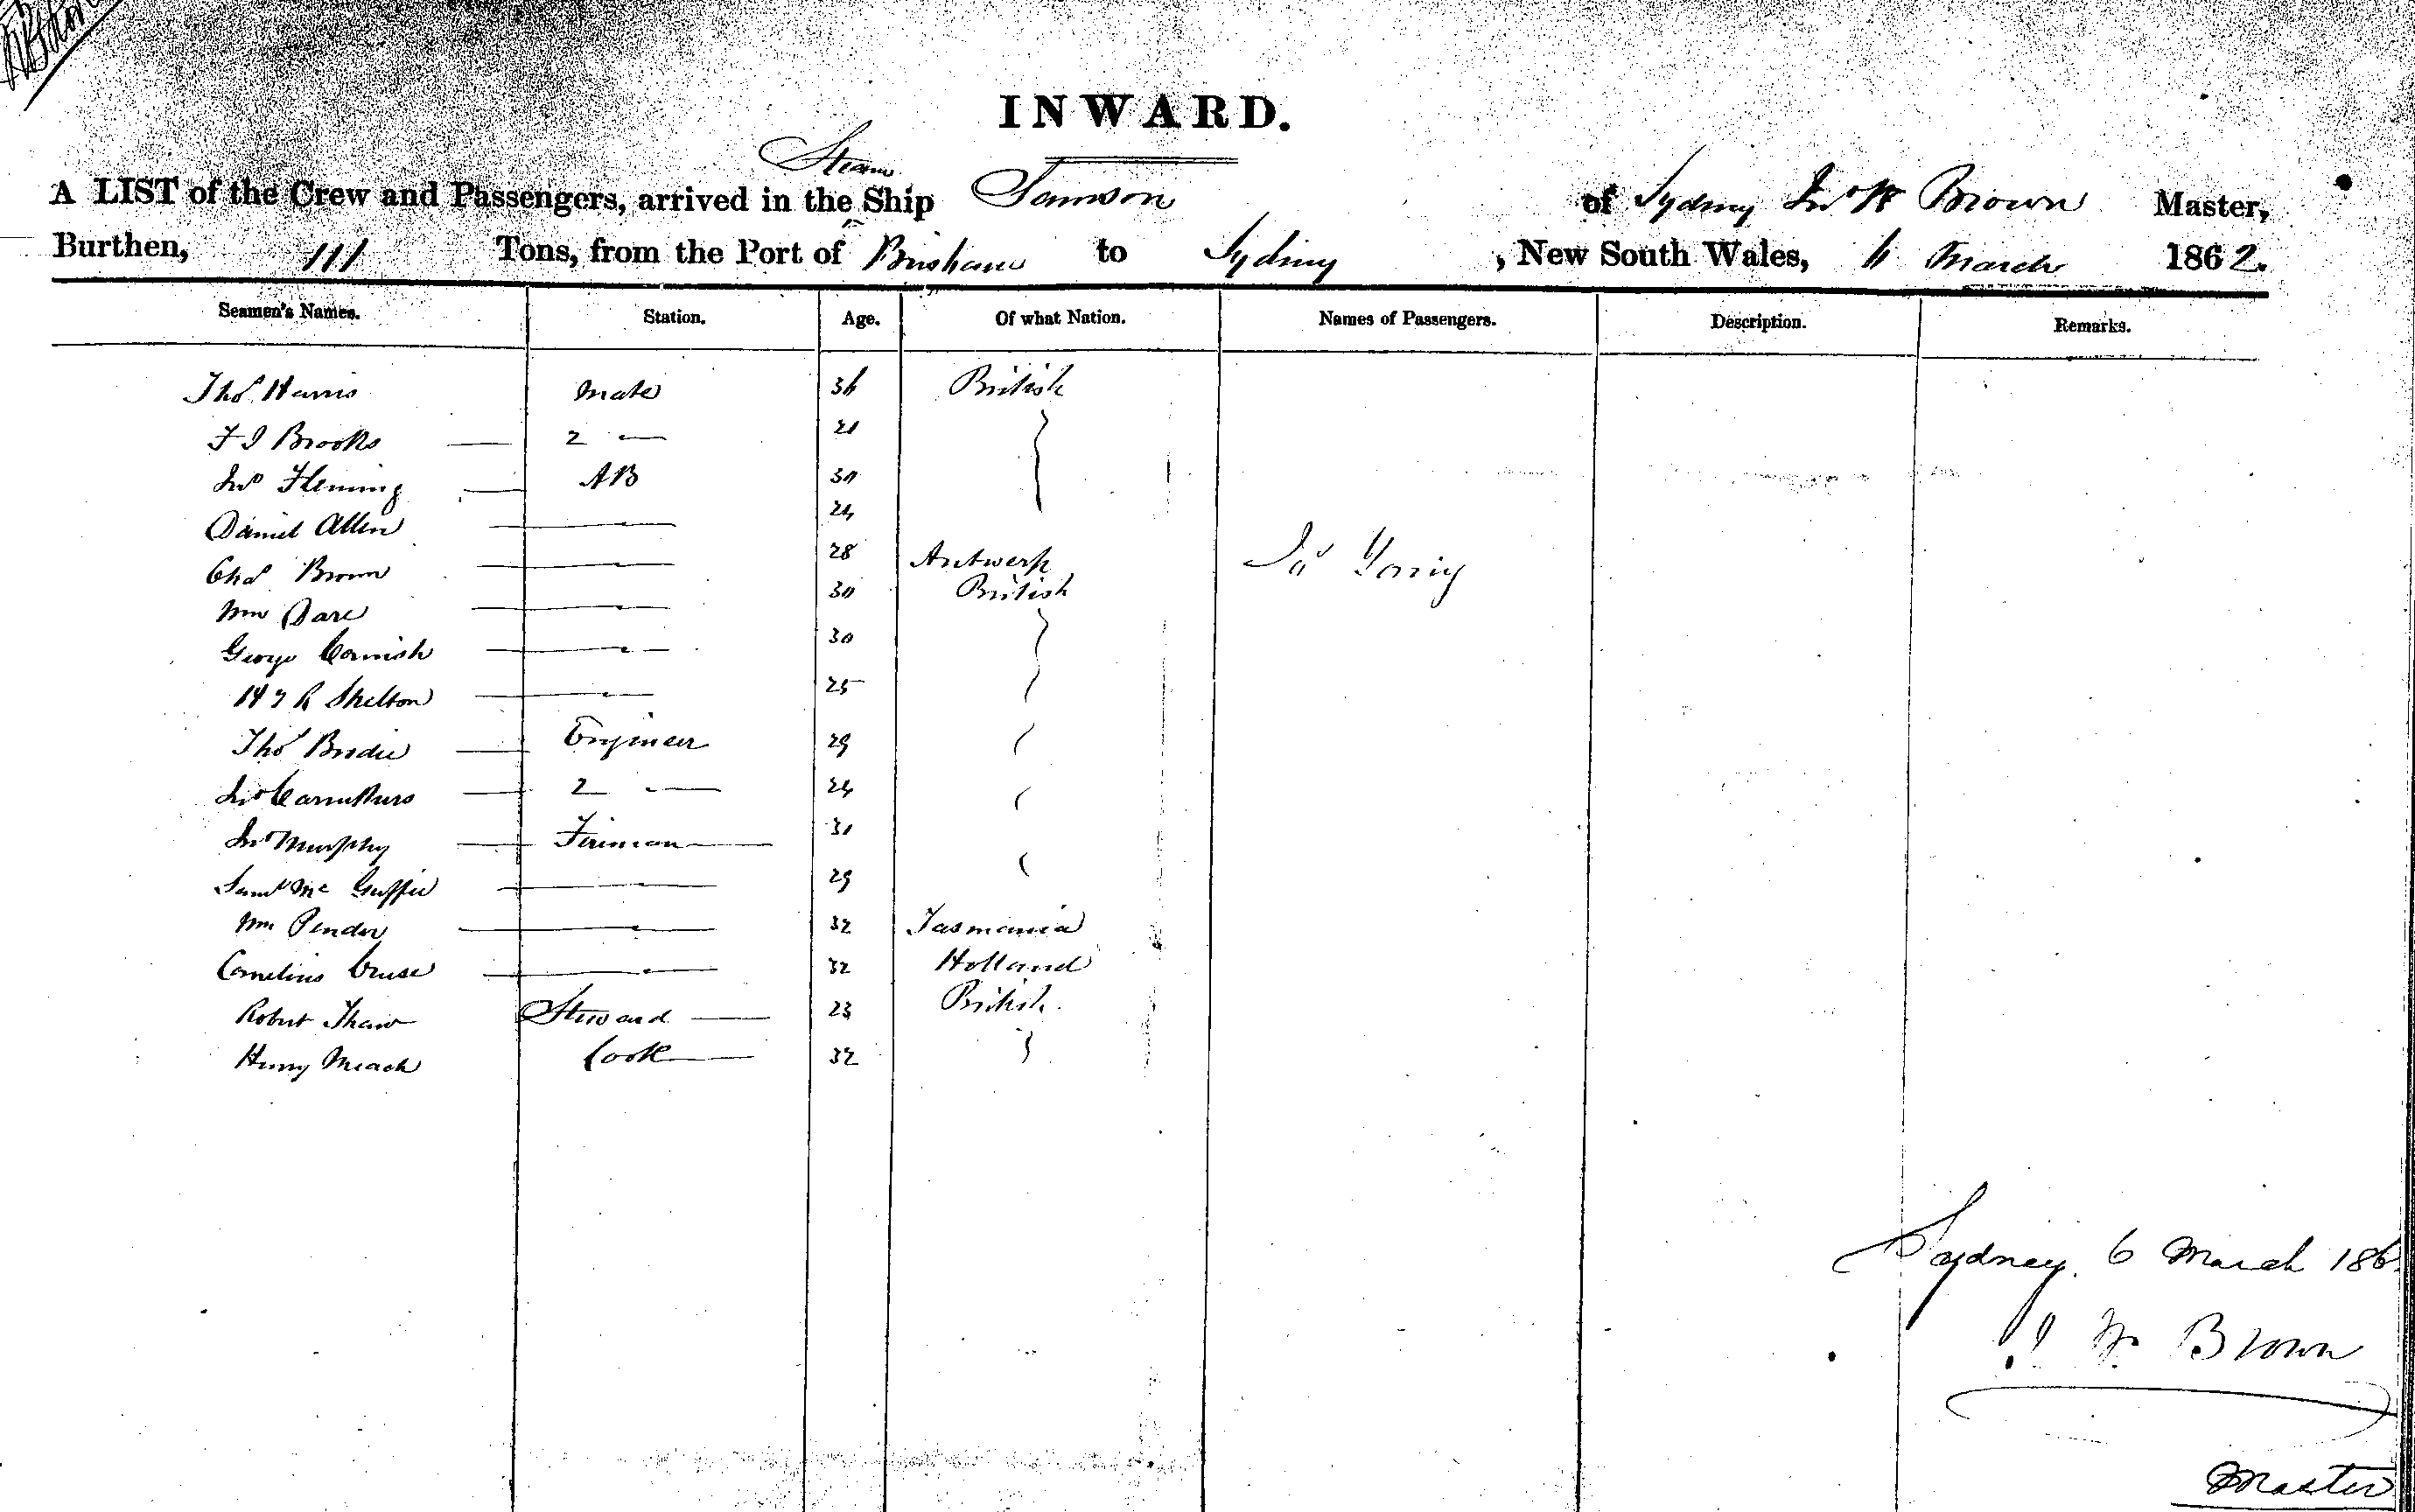 INWARD.
Steam
A LIST of the Crew and Passengers, arrived in the Ship Samson of Sydney Jno W Brown Master,
Burthen, 111 Tons, from the Port of Brisbane to Sydney, New South Wales, 6 March 1862.
Seamen's Names. Station. Age. Of what Nation. Names of Passengers. Description. Remarks.
Thos Harris Mate 36 British
F J Brooks — 2 " — 21
Jno Fleming — AB 30
Daniel Allen — " — 24
Chas Brown — " — 28 Antwerp
Wm Dare — " — 30 British
George Cornish — " — 30
R Shelton — " — 25
Thos Brodie — Engineer 29
Jno Carruthers — 2 " — 24
Jno Murphy — Fireman — 31
Saml Mc Guffie — " — 29
Wm Pender — " — 32 Tasmania
Cornelius Cruse — " — 32 Holland
Robert Thaw Steward — 23 British
Henry Meach Cook — 32
Sydney. 6 March 186
J W Brown
Master